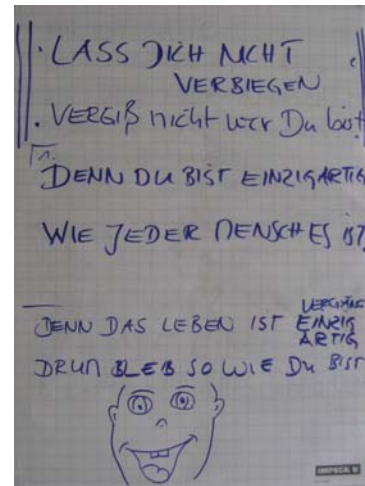 · LASS DICH NICHT
VERBIEGEN
. VERGIß nicht wer Du bist
1.
DENN DU BIST EINZIGARTIG
WIE JEDER MENSCH ES IST
DENN DAS LEBEN IST EINZIG
ARTIG
DRUM BLEB SO WIE DU BIST
IMPEGA